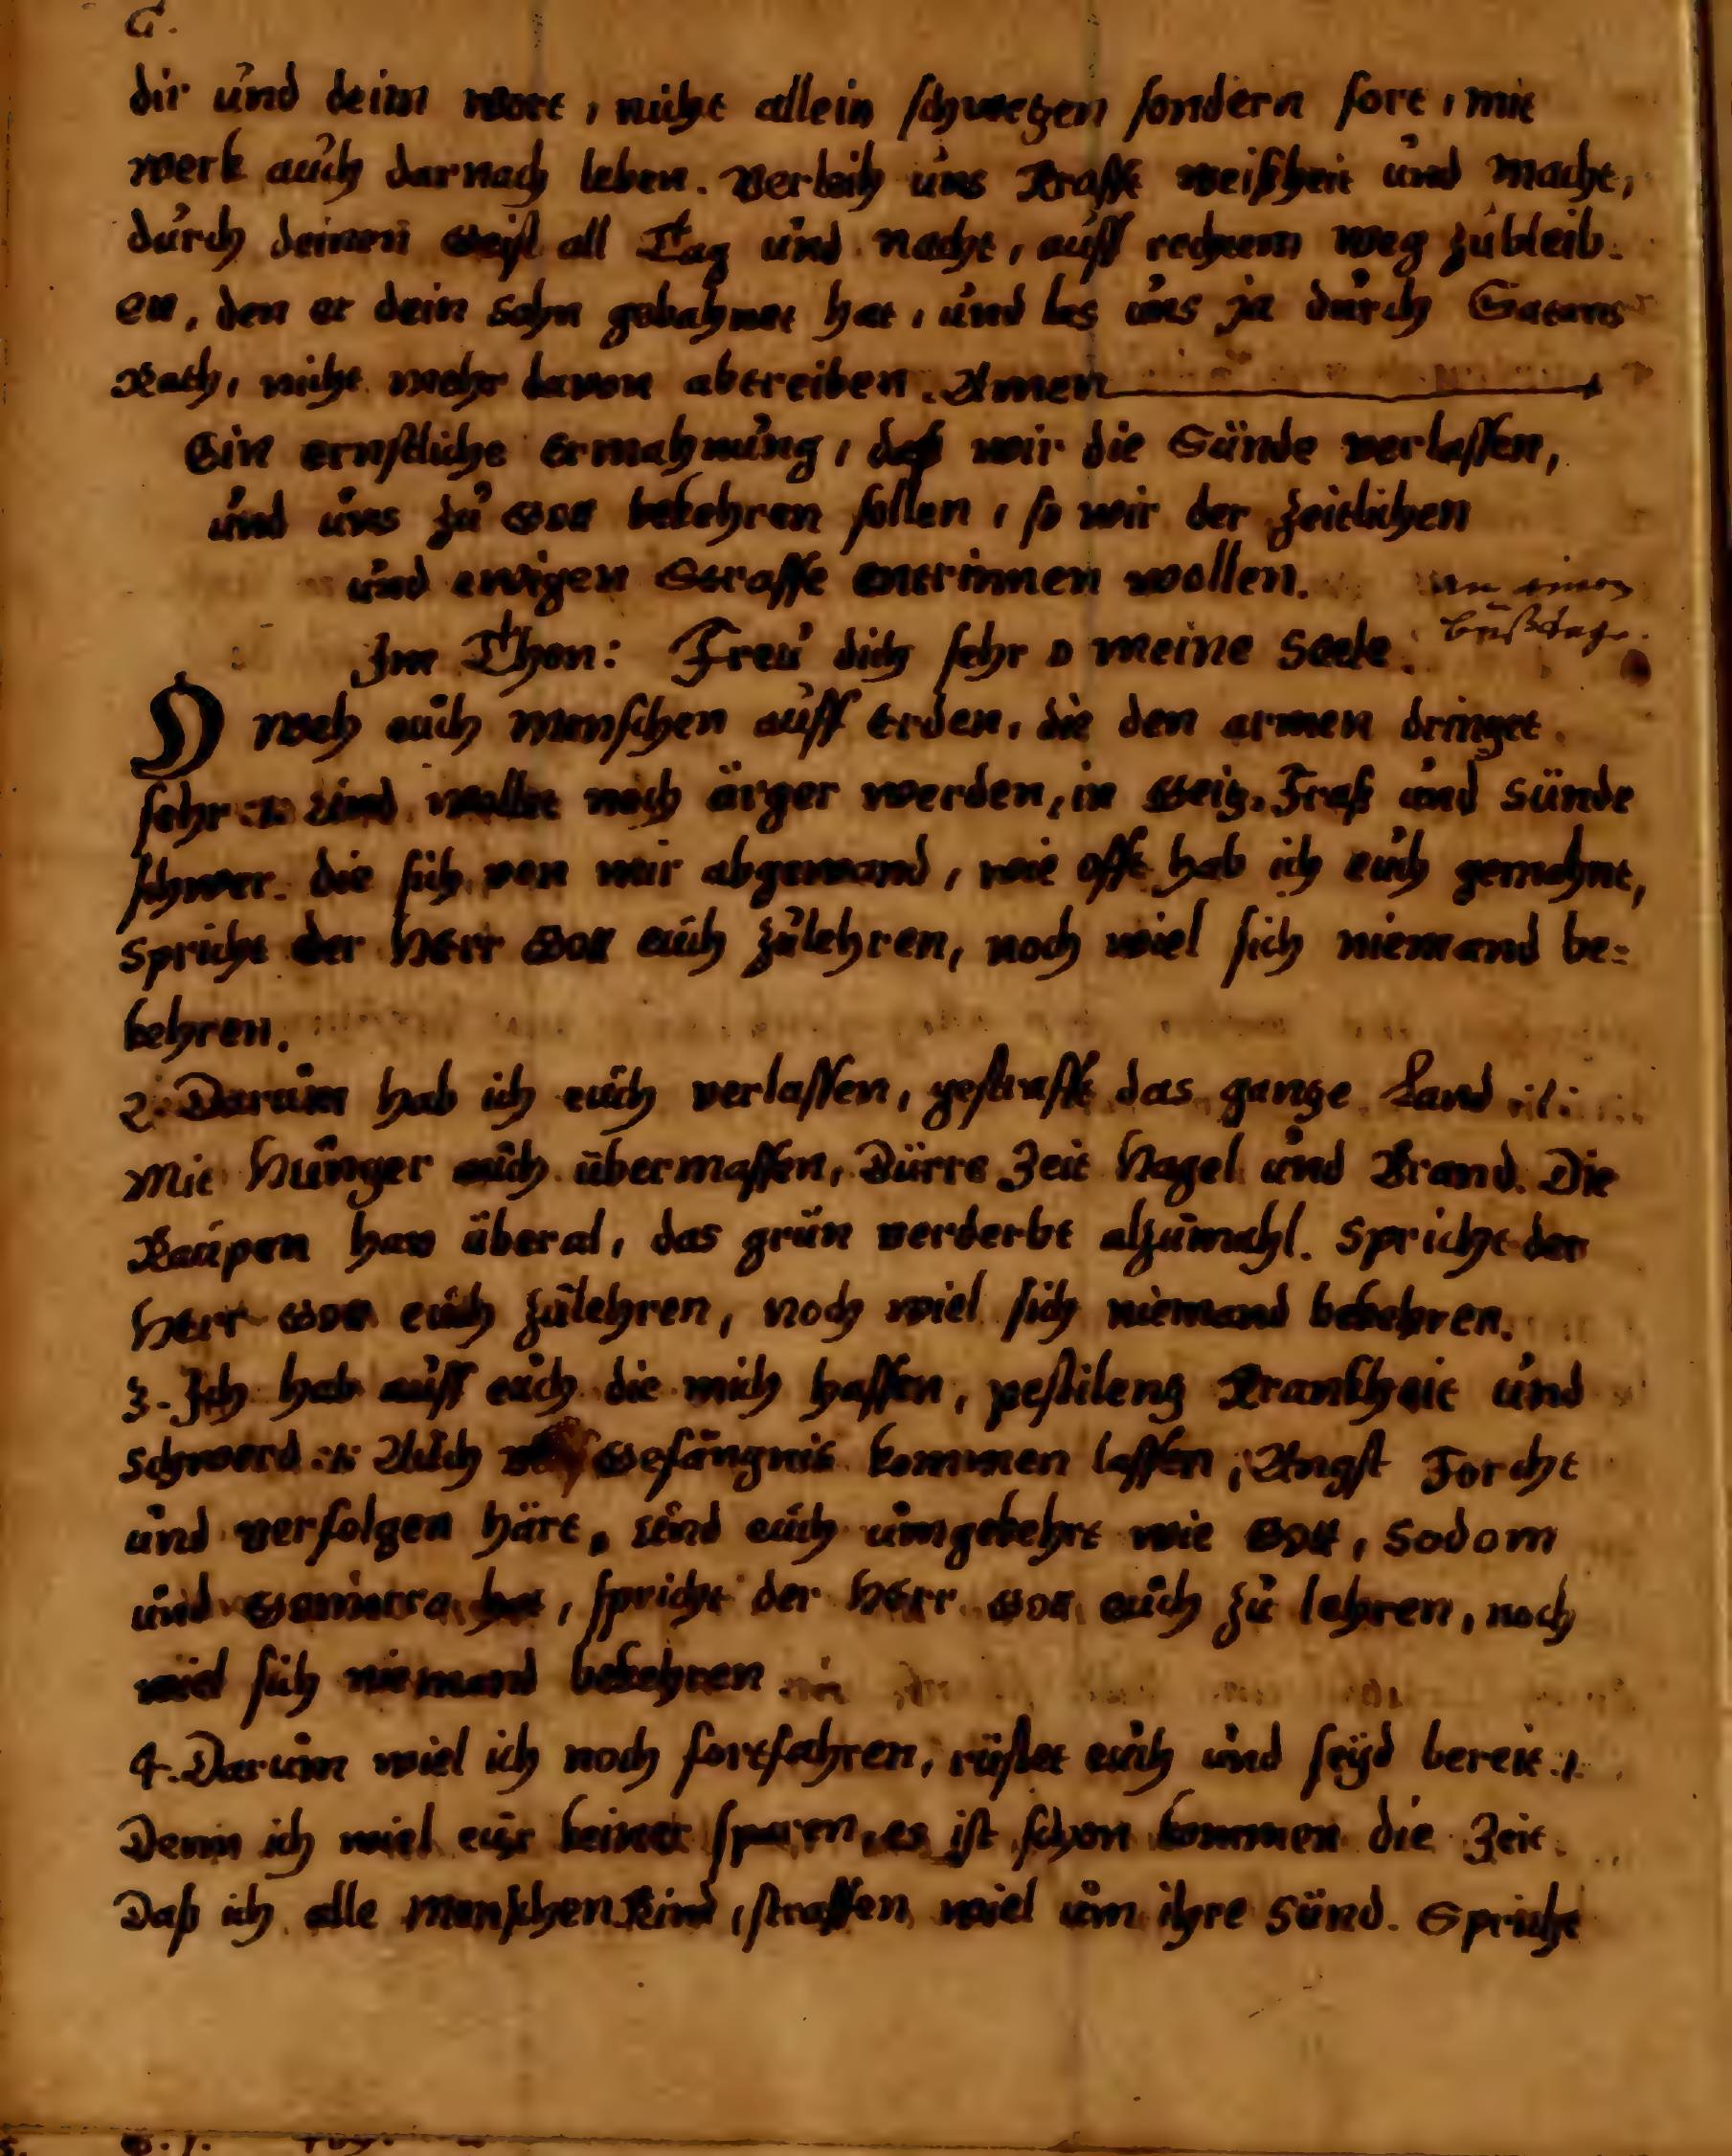 dir und deim wort, nicht allein schwetzen sondern fort, mit
werk auch darnach leben. Verleih uns Krafft weißheit und Macht,
durch deinen Geist all Tag und nacht, auff rechtem Weg zubleib-
en, den er dein Sohn gebahnet hat, und las uns ja durch Satans
Rath, nicht mehr davon abtreiben. Amen
Ein ernstliche Ermahnung, daß wir die Sünde verlassen,
und uns zu Gott bekehren sollen, so wir der zeitlichen
und ewigen Straffe entrinnen wollen.
An einem
bußtage.
Im Thon: Freu dich sehr o meine Seele.
O weh euch Menschen auff Erden, die den armen dringet
sehr :/: Und wollet noch ärger werden, in Geitz, Fraß und Sünde
schwer. die sich von mir abgewand, wie offt hab ich euch gemahnt,
Spricht der Herr Gott euch zulehren, noch wiel sich niemand be-
kehren.
2. Darum hab ich euch verlassen, gestrafft das gantze Land :/:
Mit Hunger auch übermassen, Dürre Zeit Hagel und Brand. Die
Raupen han überal, das grün verderbt alzumahl. Spricht der
Herr Gott euch zulehren, noch wiel sich niemand bekehren.
3. Ich hab auff euch die mich hassen, pestilentz Krankheit und
Schwerd :/: Auch Gefängnis kommen lassen, Angst Forcht
und verfolgen härt, Und euch umgekehrt wie Gott, Sodom
und Gomorra hat, spricht der Herr Gott euch zu lehren, noch
wiel sich niemand bekehren
4. Darum wiel ich noch fortfahren, rüstet euch und seÿd bereit :/:
Denn ich wiel eur keiner sparen, es ist schon kommen die Zeit.
Daß ich alle Menschen Kind, straffen wiel um ihre Sünd. Spricht